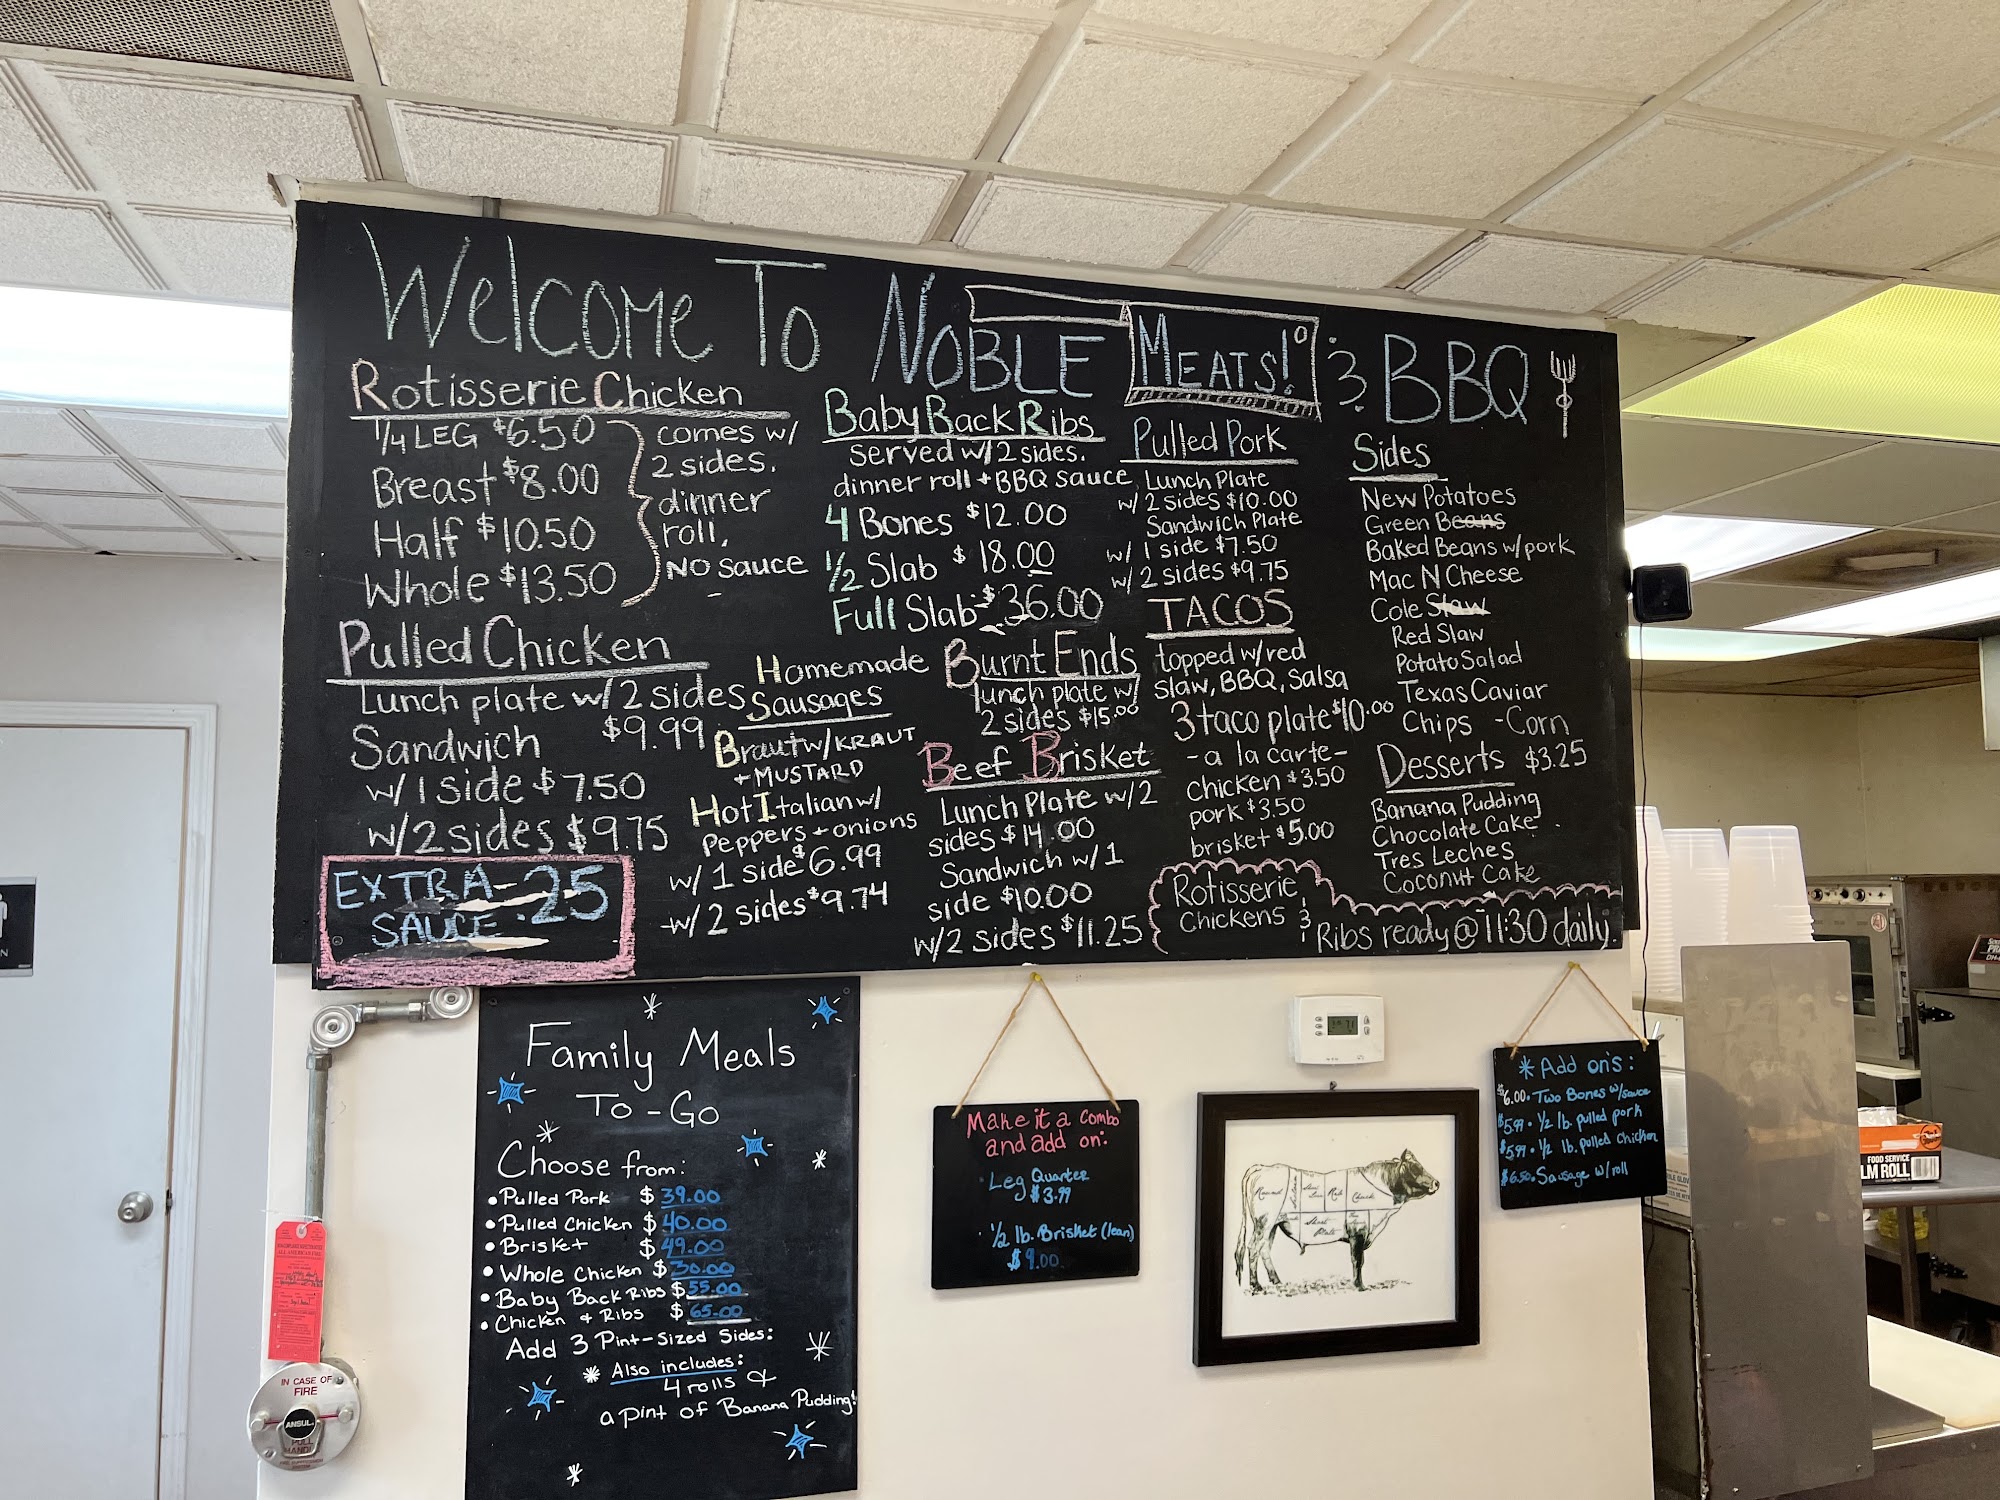 Welcome To Noble Meats! & BBQ
Rotisserie Chicken
1/4 LEG $6.50
Breast $8.00
Half $10.50
Whole $13.50
comes w/
2 sides.
dinner
roll,
NO sauce
Pulled Chicken
Lunch plate w/ 2 sides
$9.99
Sandwich
w/ 1 side $7.50
w/ 2 sides $9.75
EXTRA
SAUCE - .25
Baby Back Ribs
served w/ 2 sides.
dinner roll + BBQ sauce
4 Bones $12.00
1/2 Slab $18.00
Full Slab $36.00
Homemade
Sausages
Braut w/ KRAUT
+ MUSTARD
Hot Italian w/
Peppers + onions
w/ 1 side $6.99
w/ 2 sides $9.74
Burnt Ends
lunch plate w/
2 sides $15.00
Beef Brisket
Lunch Plate w/2
sides $14.00
Sandwich w/ 1
side $10.00
w/ 2 sides $11.25
Pulled Pork
Lunch Plate
w/ 2 sides $10.00
Sandwich Plate
w/ 1 side $7.50
w/ 2 sides $9.75
TACOS
topped w/red
slaw, BBQ, Salsa
3 taco plate $10.00
- a la carte -
chicken $3.50
pork $3.50
brisket $5.00
Sides
New Potatoes
Green Beans
Baked Beans w/ pork
Mac N Cheese
Cole Slaw
Red Slaw
Potato Salad
Texas Caviar
Chips - Corn
Desserts $3.25
Banana Pudding
Chocolate Cake
Tres Leches
Coconut Cake
Rotisserie
Chickens &
Ribs ready @ 11:30 daily
Family Meals
To - Go
Choose from:
• Pulled Pork $ 39.00
• Pulled Chicken $ 40.00
• Brisket $ 49.00
• Whole Chicken $ 30.00
• Baby Back Ribs $ 55.00
• Chicken & Ribs $ 65.00
Add 3 Pint-Sized Sides:
* Also includes:
4 rolls &
a pint of Banana Pudding!
Make it a combo
and add on:
Leg Quarter
$3.99
1/2 lb. Brisket (lean)
$9.00
* Add on's:
$6.00 • Two Bones w/sauce
$5.99 • 1/2 lb. pulled pork
$5.99 • 1/2 lb. pulled chicken
$6.50 • Sausage w/ roll
Round
Rib
Chuck
Short
Plate
IN CASE OF
FIRE
ANSUL
PULL
FOOD SERVICE
LM ROLL